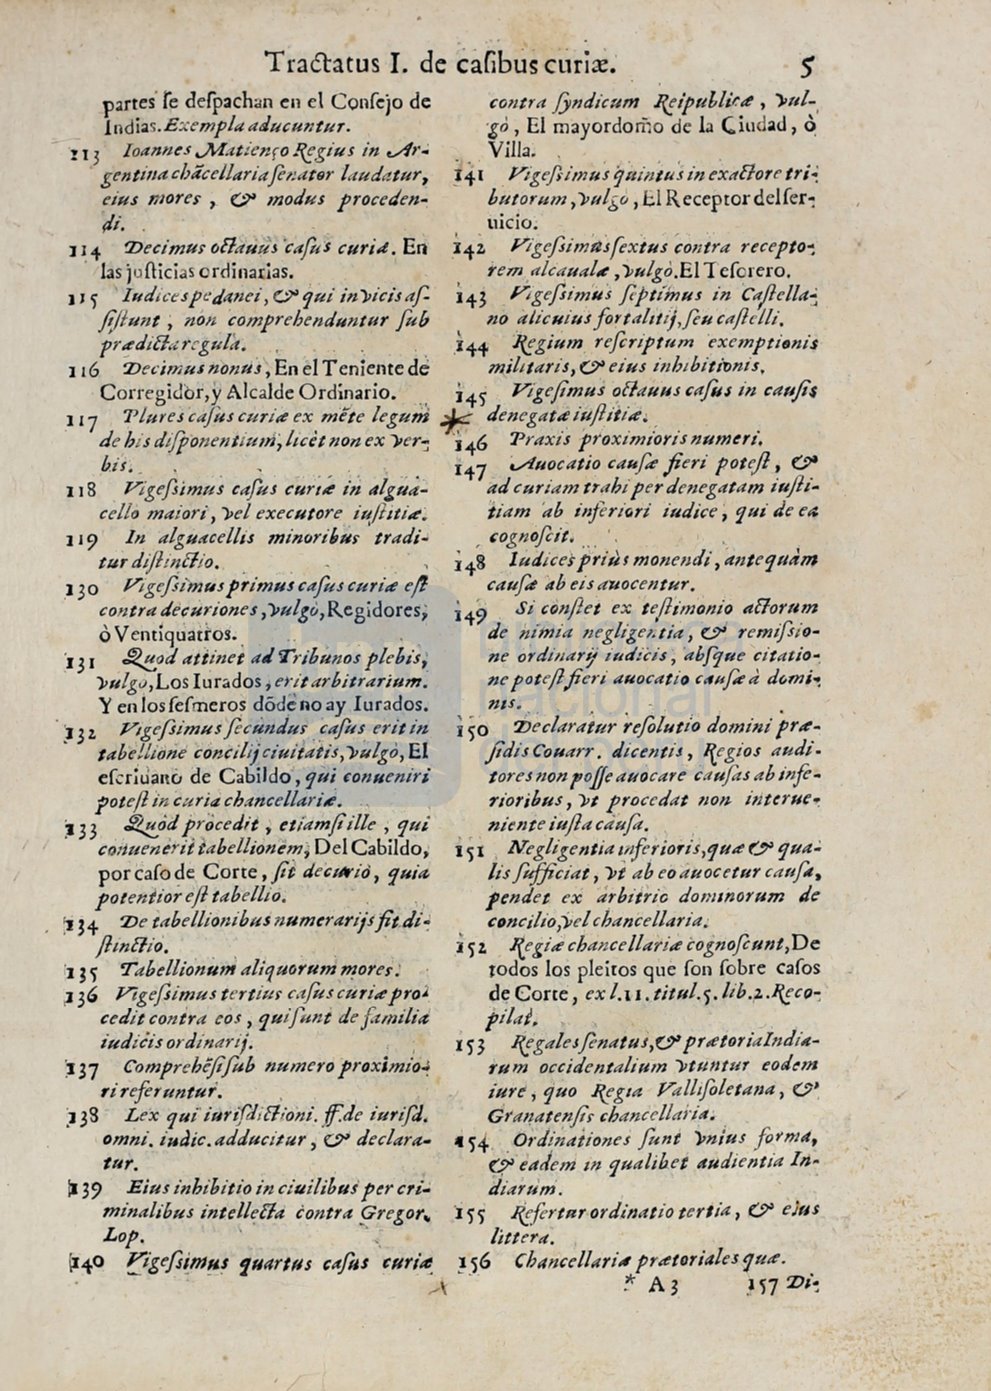 Tractatus I. de casibus curiæ. 5
partes ſe deſpachan en el Conſejo de
Indias. Exempla aducuntur.
113 Ioannes Matienço Regius in Ar-
gentina chãcellaria ſenator laudatur,
eius mores, & modus proceden-
di.
114 Decimus octauus caſus curiæ. En
las juſticias ordinarias.
115 Iudices pedanei, & qui in vicis aſ-
ſiſtunt, non comprehenduntur ſub
prædicta regula.
116 Decimus nonus, En el Teniente de
Corregidor, y Alcalde Ordinario.
117 Plures caſus curiæ ex mẽte legum
de his diſponentium, licèt non ex ver-
bis.
118 Vigeſsimus caſus curiæ in algua-
cello maiori, vel executore iuſtitiæ.
119 In alguacellis minoribus tradi-
tur diſtinctio.
130 Vigeſsimus primus caſus curiæ eſt
contra decuriones, vulgò, Regidores,
ò Ventiquatros.
131 Quod attinet ad Tribunos plebis,
vulgo, Los Iurados, erit arbitrarium.
Y en los ſeſmeros dõde no ay Iurados.
132 Vigeſsimus ſecundus caſus erit in
tabellione concilij ciuitatis, vulgò, El
eſcriuano de Cabildo, qui conueniri
poteſt in curia chancellariæ.
133 Quòd procedit, etiamſi ille, qui
conuenerit tabellionem, Del Cabildo,
por caſo de Corte, ſit decurio, quia
potentior eſt tabellio.
134 De tabellionibus numerarijs fit di-
ſtinctio.
135 Tabellionum aliquorum mores.
136 Vigeſsimus tertius caſus curiæ pro-
cedit contra eos, qui ſunt de familia
iudicis ordinarij.
137 Comprehẽſi ſub numero proximio-
ri referuntur.
138 Lex qui iuriſdictioni. ff. de iuriſd.
omni. iudic. adducitur, & declara-
tur.
139 Eius inhibitio in ciuilibus per cri-
minalibus intellecta contra Gregor.
Lop.
140 Vigeſsimus quartus caſus curiæ
contra ſyndicum Reipublicæ, vul-
gò, El mayordom̃o de la Ciudad, ò
Villa.
141 Vigeſsimus quintus in exactore tri-
butorum, vulgo, El Receptor del ſer-
uicio.
142 Vigeſsimus ſextus contra recepto-
rem alcaualæ, vulgò. El Teſorero.
143 Vigeſsimus ſeptimus in Caſtella-
no alicuius fortalitij, ſeu caſtelli.
144 Regium reſcriptum exemptionis
militaris, & eius inhibitionis.
145 Vigeſimus octauus caſus in cauſis
denegatæ iuſtitiæ.
146 Praxis proximioris numeri.
147 Auocatio cauſæ fieri poteſt, &
ad curiam trahi per denegatam iuſti-
tiam ab inferiori iudice, qui de ea
cognoſcit.
148 Iudices priùs monendi, antequàm
cauſæ ab eis auocentur.
149 Si conſtet ex teſtimonio actorum
de nimia negligentia, & remiſsio-
ne ordinarij iudicis, abſque citatio-
ne poteſt fieri auocatio cauſæ à domi-
nis.
150 Declaratur reſolutio domini præ-
ſidis Couarr. dicentis, Regios audi-
tores non poſſe auocare cauſas ab infe-
rioribus, vt procedat non interue-
niente iuſta cauſa.
151 Negligentia inferioris, quæ & qua-
lis ſufficiat, vt ab eo auocetur cauſa,
pendet ex arbitrio dominorum de
concilio, vel chancellaria.
152 Regiæ chancellariæ cognoſcunt, De
todos los pleitos que ſon ſobre caſos
de Corte, ex l. 11. titul. 5. lib. 2. Reco-
pilat.
153 Regales ſenatus, & prætoria India-
rum occidentalium vtuntur eodem
iure, quo Regia Valliſoletana, &
Granatenſis chancellaria.
154 Ordinationes ſunt vnius forma,
& eadem in qualibet audientia In-
diarum.
155 Refertur ordinatio tertia, & eius
littera.
156 Chancellariæ prætoriales quæ.
* A 3 157 Di-